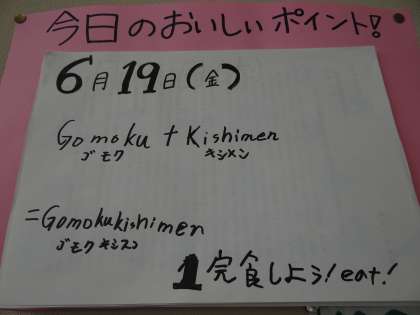 今日のおいしいポイント!
6月19日(金)
Gomoku + Kishimen
ゴモク キシメン
=Gomokukishimen
ゴモクキシメン
1完食しよう!eat!